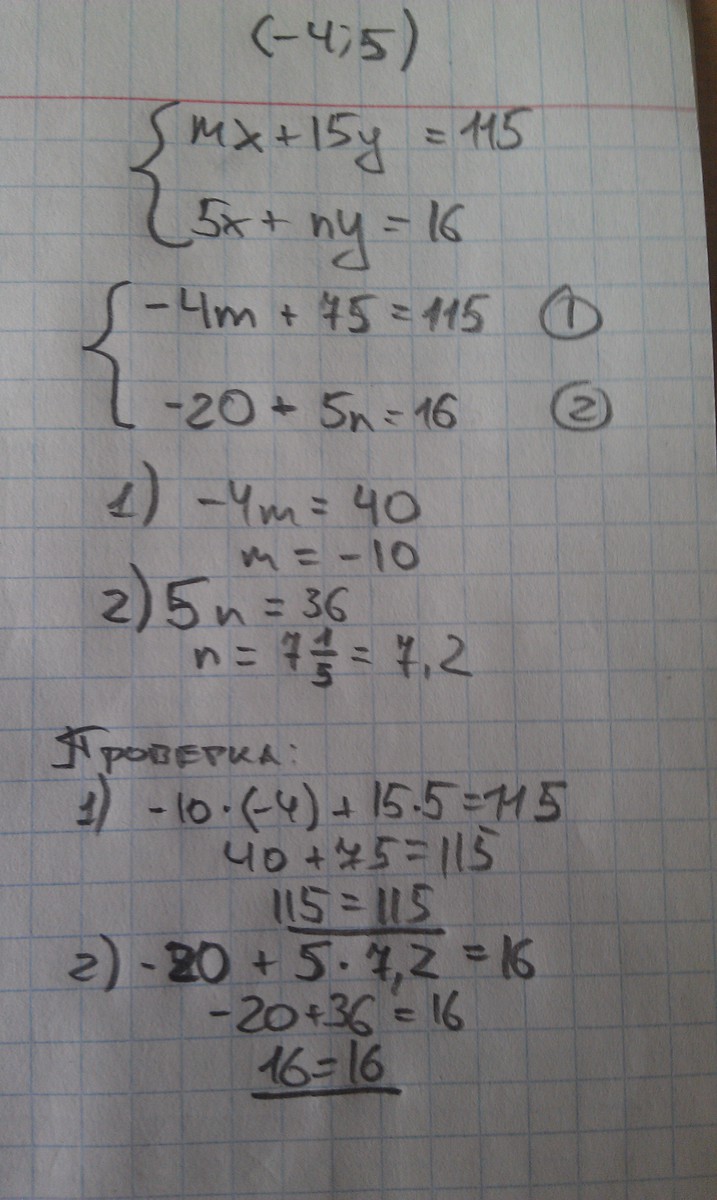 (-4;5)
mx+15y = 115
5x + ny = 16
-4m + 75 = 115 ①
-20 + 5n = 16 ②
1) -4m = 40
m = -10
2) 5n = 36
n = 7 1/5 = 7,2
Проверка:
1) -10·(-4) + 15·5 = 115
40 + 75 = 115
115 = 115
2) -20 + 5·7,2 = 16
-20+36 = 16
16=16